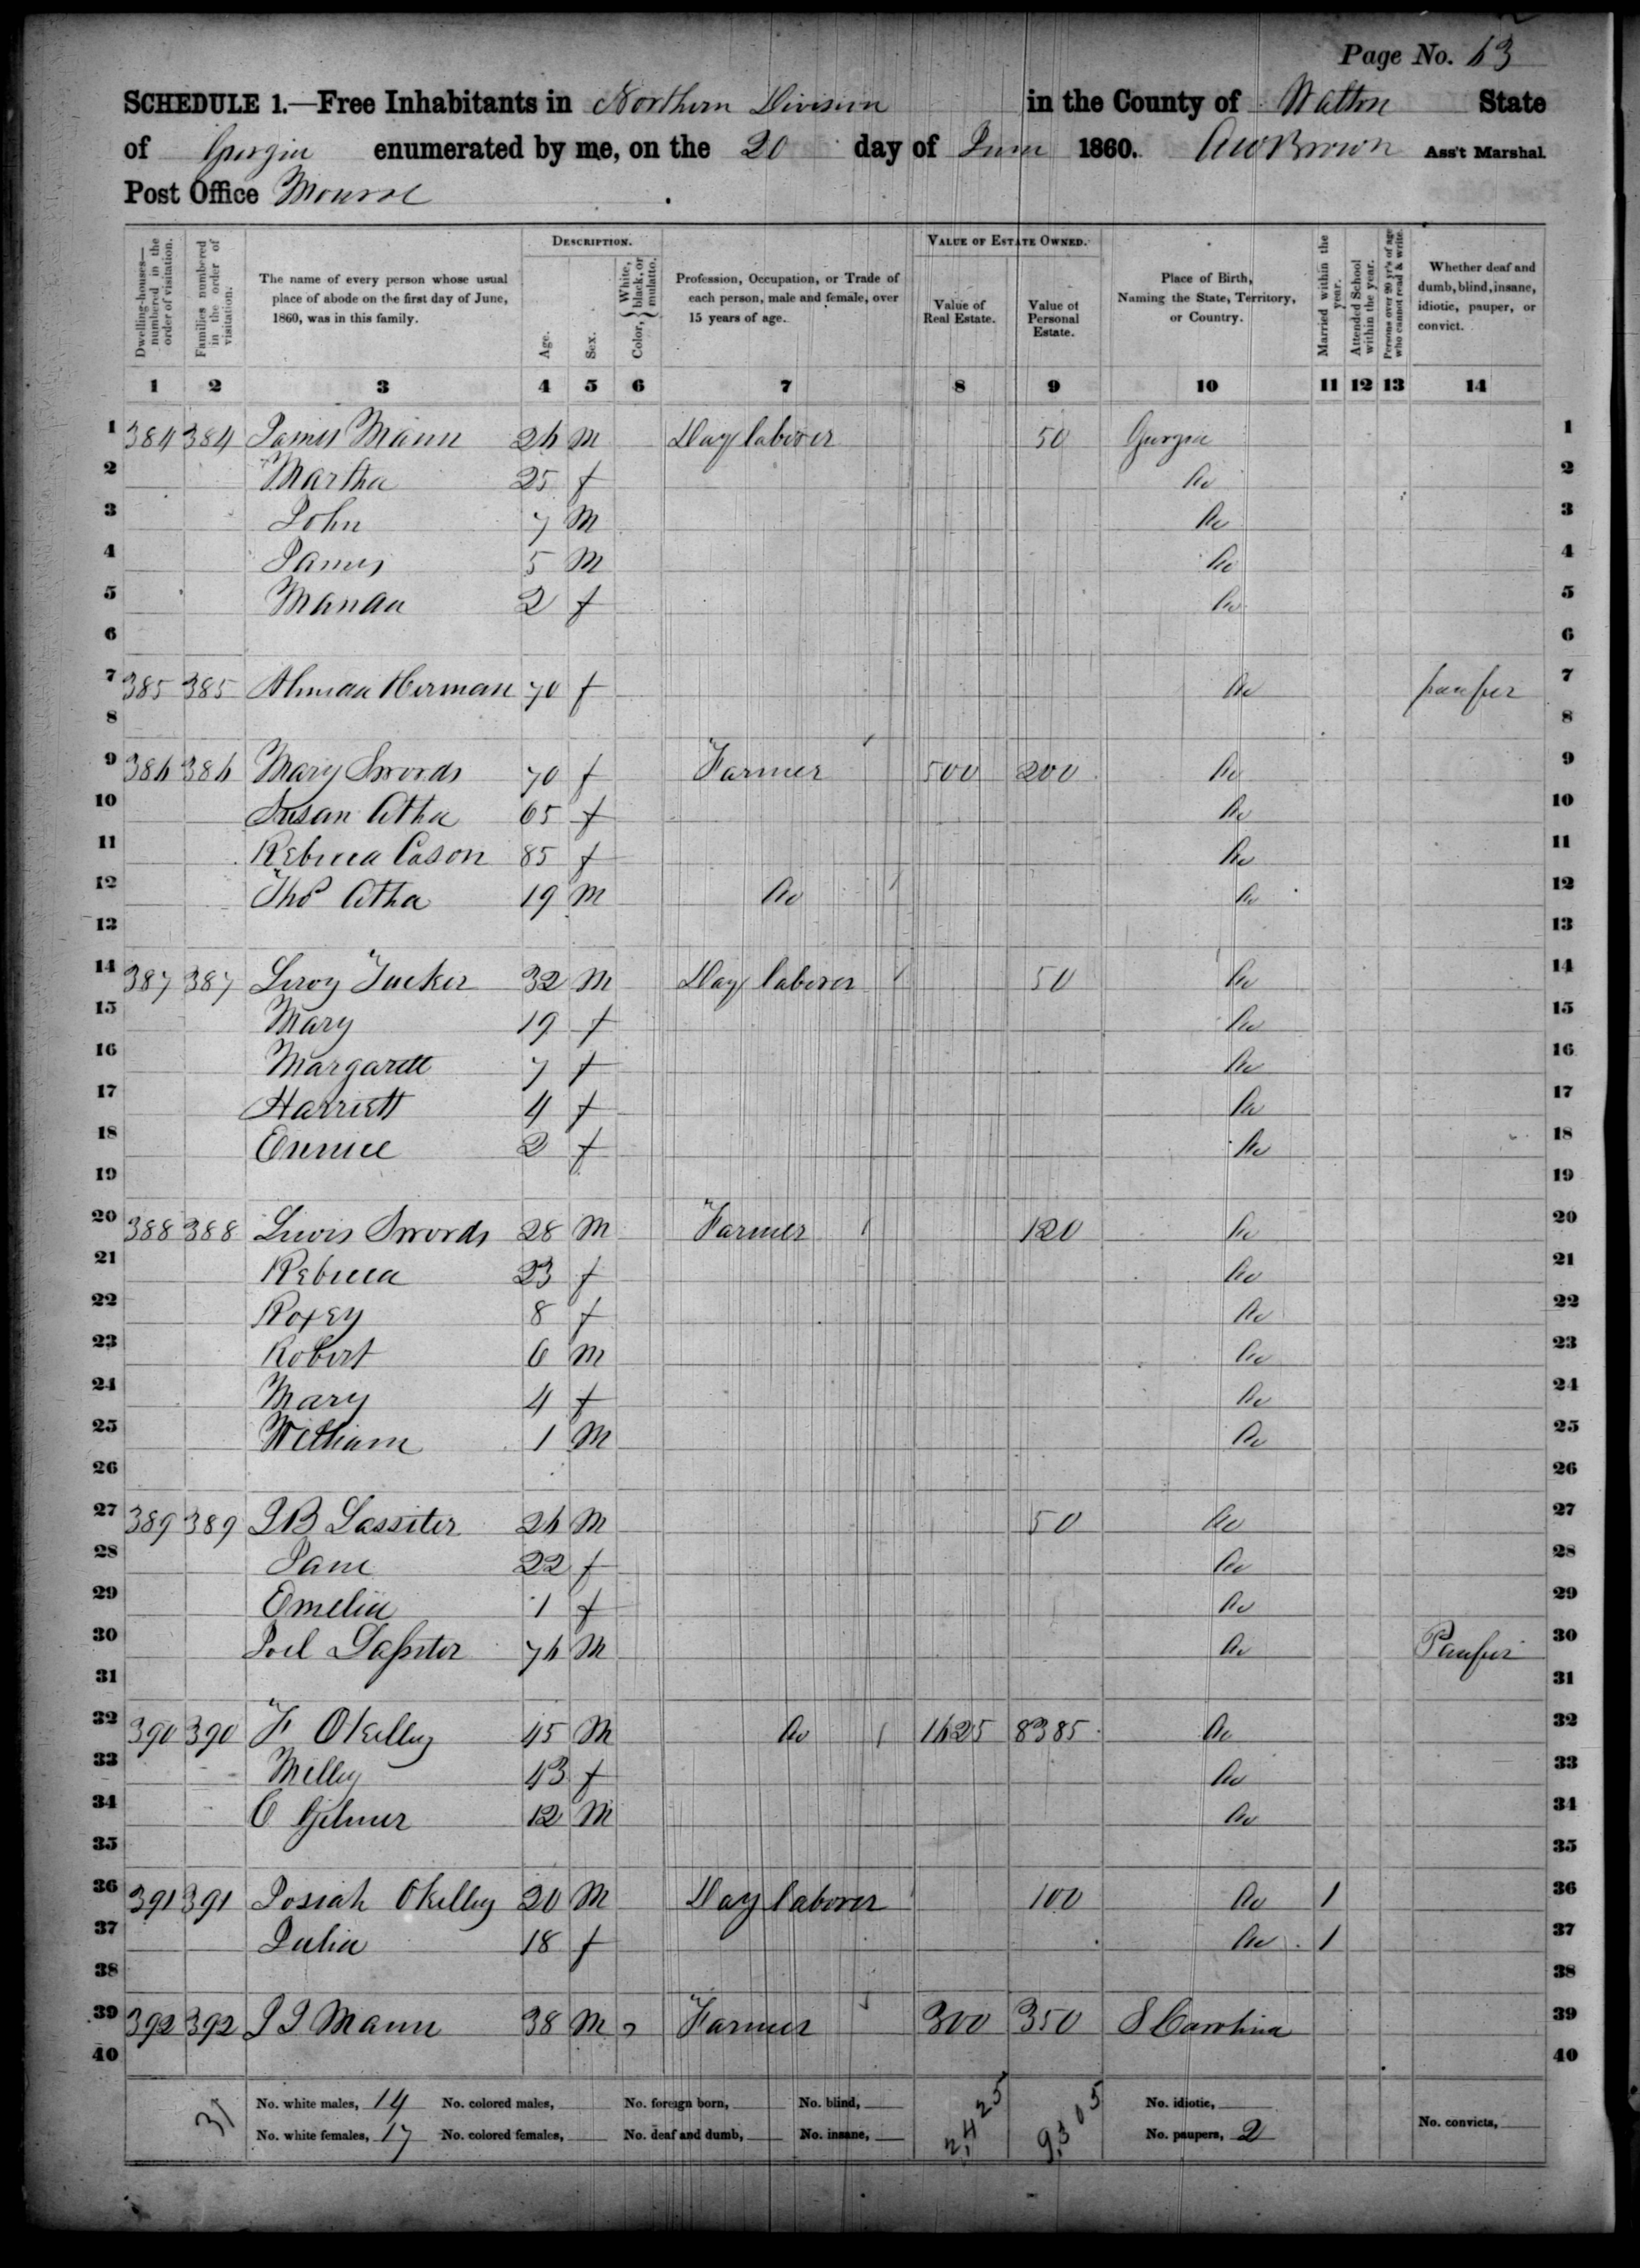 Page No. 63
SCHEDULE 1.—Free Inhabitants in Northern Division in the County of Walton State
of Georgia enumerated by me, on the 20 day of June 1860. A W Brown Ass't Marshal.
Post Office Monroe
Dwelling-houses—numbered in the order of visitation.
Families numbered in the order of visitation.
The name of every person whose usual place of abode on the first day of June, 1860, was in this family.
DESCRIPTION.
Age.
Sex.
Color, { White, black, or mulatto.
Profession, Occupation, or Trade of each person, male and female, over 15 years of age.
VALUE OF ESTATE OWNED.
Value of Real Estate.
Value of Personal Estate.
Place of Birth, Naming the State, Territory, or Country.
Married within the year.
Attended School within the year.
Persons over 20 yr's of age who cannot read & write.
Whether deaf and dumb, blind, insane, idiotic, pauper, or convict.
1 2 3 4 5 6 7 8 9 10 11 12 13 14
1 384 384 James Mann 26 M Day laborer 50 Georgia 1
2 Martha 25 f Do 2
3 John 7 M Do 3
4 James 5 M Do 4
5 2 f Do 5
6 6
7 385 385 Herman 70 f Do pauper 7
8 8
9 386 386 Mary Swords 70 f Farmer 500 200 Do 9
10 Susan Atha 65 f Do 10
11 Rebecca Cason 85 f Do 11
12 Thos Atha 19 M Do Do 12
13 13
14 387 387 Leroy Tucker 32 M Day laborer 50 Do 14
15 Mary 19 f Do 15
16 Margarett 7 f Do 16
17 Harriett 4 f Do 17
18 Eunice 2 f Do 18
19 19
20 388 388 Lewis Swords 28 M Farmer 120 Do 20
21 Rebecca 23 f Do 21
22 Roxey 8 f Do 22
23 Robert 6 M Do 23
24 Mary 4 f Do 24
25 William 1 M Do 25
26 26
27 389 389 J B Lassiter 26 M 50 Do 27
28 Jane 22 f Do 28
29 Emelia 1 f Do 29
30 Joel Lassiter 76 M Do Pauper 30
31 31
32 390 390 F OKelley 45 M Do 1625 8385 Do 32
33 Milley 43 f Do 33
34 C Gilmer 12 M Do 34
35 35
36 391 391 Josiah OKelley 20 M Day laborer 100 Do 1 36
37 Julia 18 f Do 1 37
38 38
39 392 392 J J Mann 38 M Farmer 300 350 S Carolina 39
40 40
31 No. white males, 14 No. colored males, No. foreign born, No. blind, 2,425 9,305 No. idiotic,
No. white females, 17 No. colored females, No. deaf and dumb, No. insane, No. paupers, 2 No. convicts,